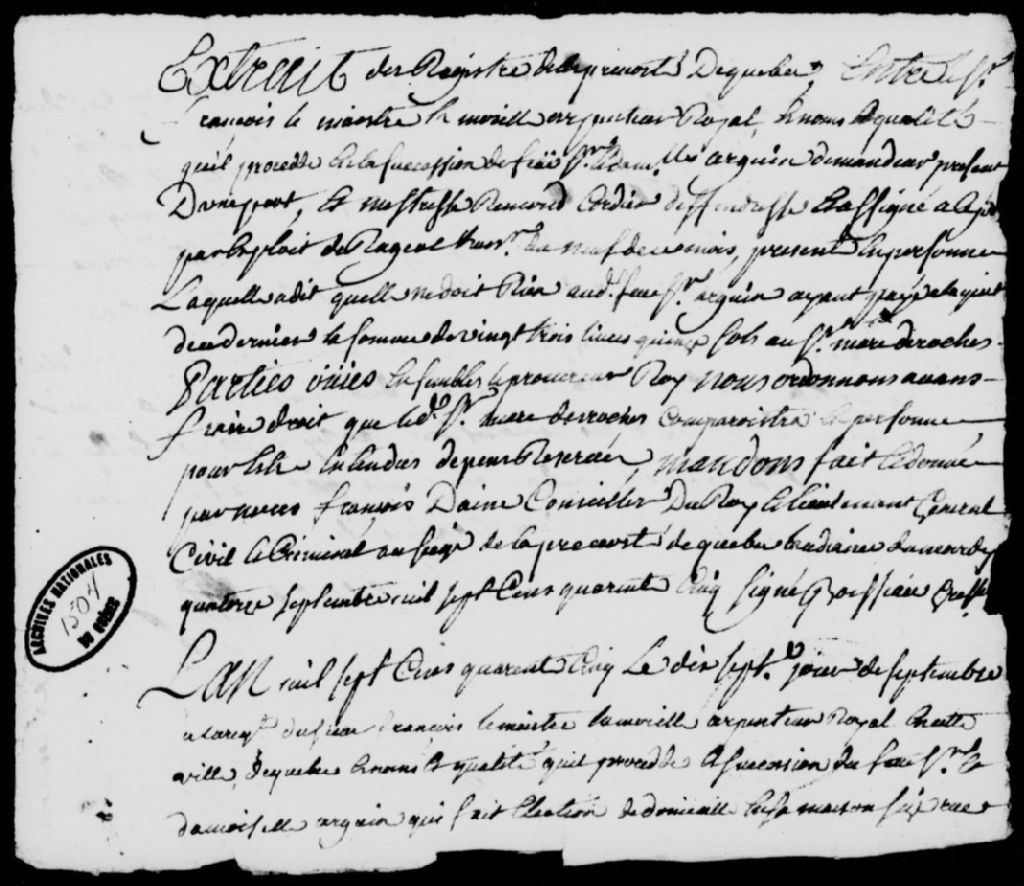 Extrait des Registre de la prevosté De quebec, Entre le Sr.
francois le maistre la morille arpenteur Royal, En nom Et qualité
quil procedde En la succession de feüe Sr. Et dam.lle arguin demandeur present
Dune part, Et Renaud Cordier deffendresse Et assigné a ce jour
par Exploit de Rageot huer. du neuf de ce mois, presente En personne
Laquelle a dit quelle ne doit Rien aud. feue Sr. arguin ayant payé
dernier la somme de vingt trois livres quinze sols au Sr. marc deroches
Parties ouies Ensembles le procureur Roy nous ordonnons avant
faire droit que led. Sr. marc desroches Comparoistra En personne
pour Estre Entendus depens Reservée, mandons fait Et donnée
par nous françois Daine Conseiller Du Roy Et lieutenant General
Civil Et Criminel au siege de la prevosté de quebec le mardy
quatorze septembre mil sept Cens quarente Cinq signé Boisseau Greffier
Lan mil sept Cens quarente Cinq Le dix sept.e jour de septembre
a la reqte du sieur françois lemaitre lamorille arpenteur Royal En cette
ville de quebec En nom Et qualité quil procedde a la succession du feue Sr. Et
damoiselle arguin qui fait Election de domicille En sa maison size rue
ARCHIVES NATIONALES
DU QUÉBEC
1504